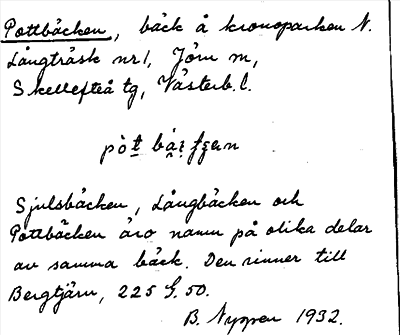 Pottbäcken, bäck å kronoparken N.
Långträsk nr 1, Jörn sn,
Skellefteå tg, Västerb. l.
Sjulsbäcken, Långbäcken och
Pottbäcken äro namn på olika delar
av samma bäck. Den rinner till
Bergtjärn, 225 G. 50.
B. Nyppen 1932.